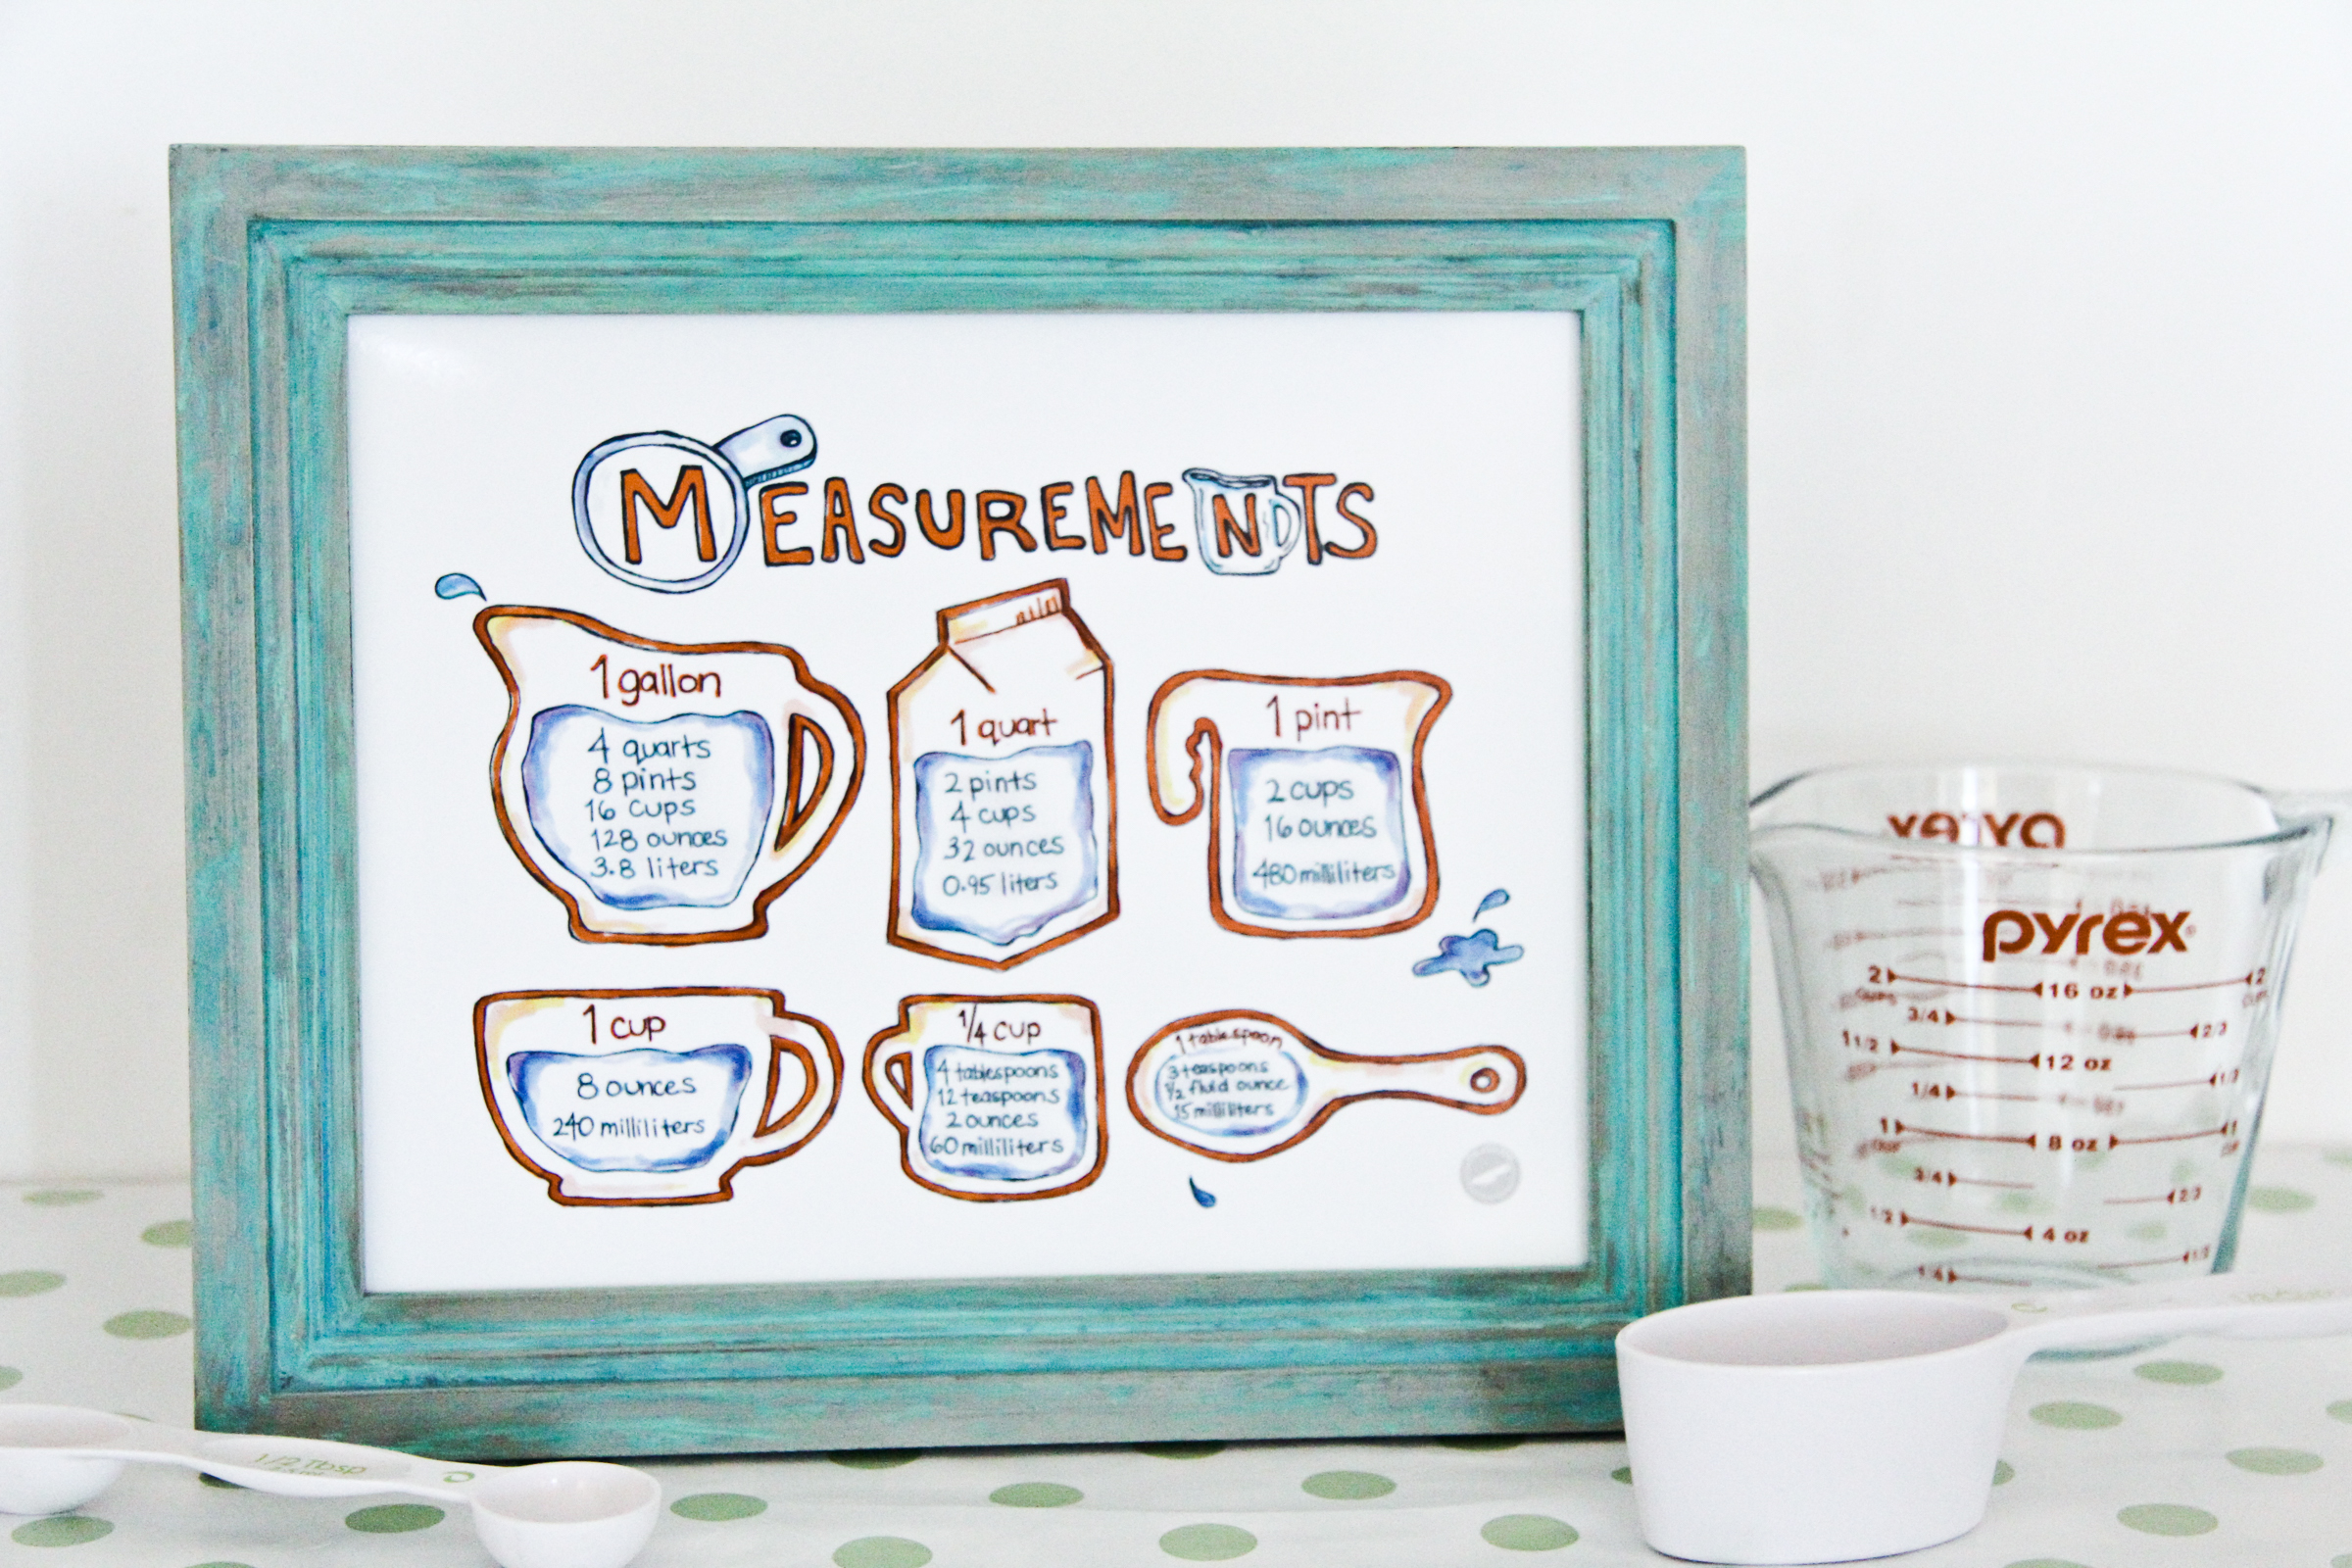 MEASUREMENTS
1 gallon
4 quarts
8 pints
16 cups
128 ounces
3.8 liters
1 quart
2 pints
4 cups
32 ounces
0.95 liters
1 pint
2 cups
16 ounces
480 milliliters
1 cup
8 ounces
240 milliliters
1/4 cup
4 tablespoons
12 teaspoons
2 ounces
60 milliliters
1 tablespoon
3 teaspoons
1/2 fluid ounce
15 milliliters
PYREX
pyrex
2 16 oz 2
3/4 2/3
1 1/2 12 oz 1/3
1/4
1 8 oz 1
3/4 2/3
1/2 4 oz 1/3
1/4
1/2 Tbsp